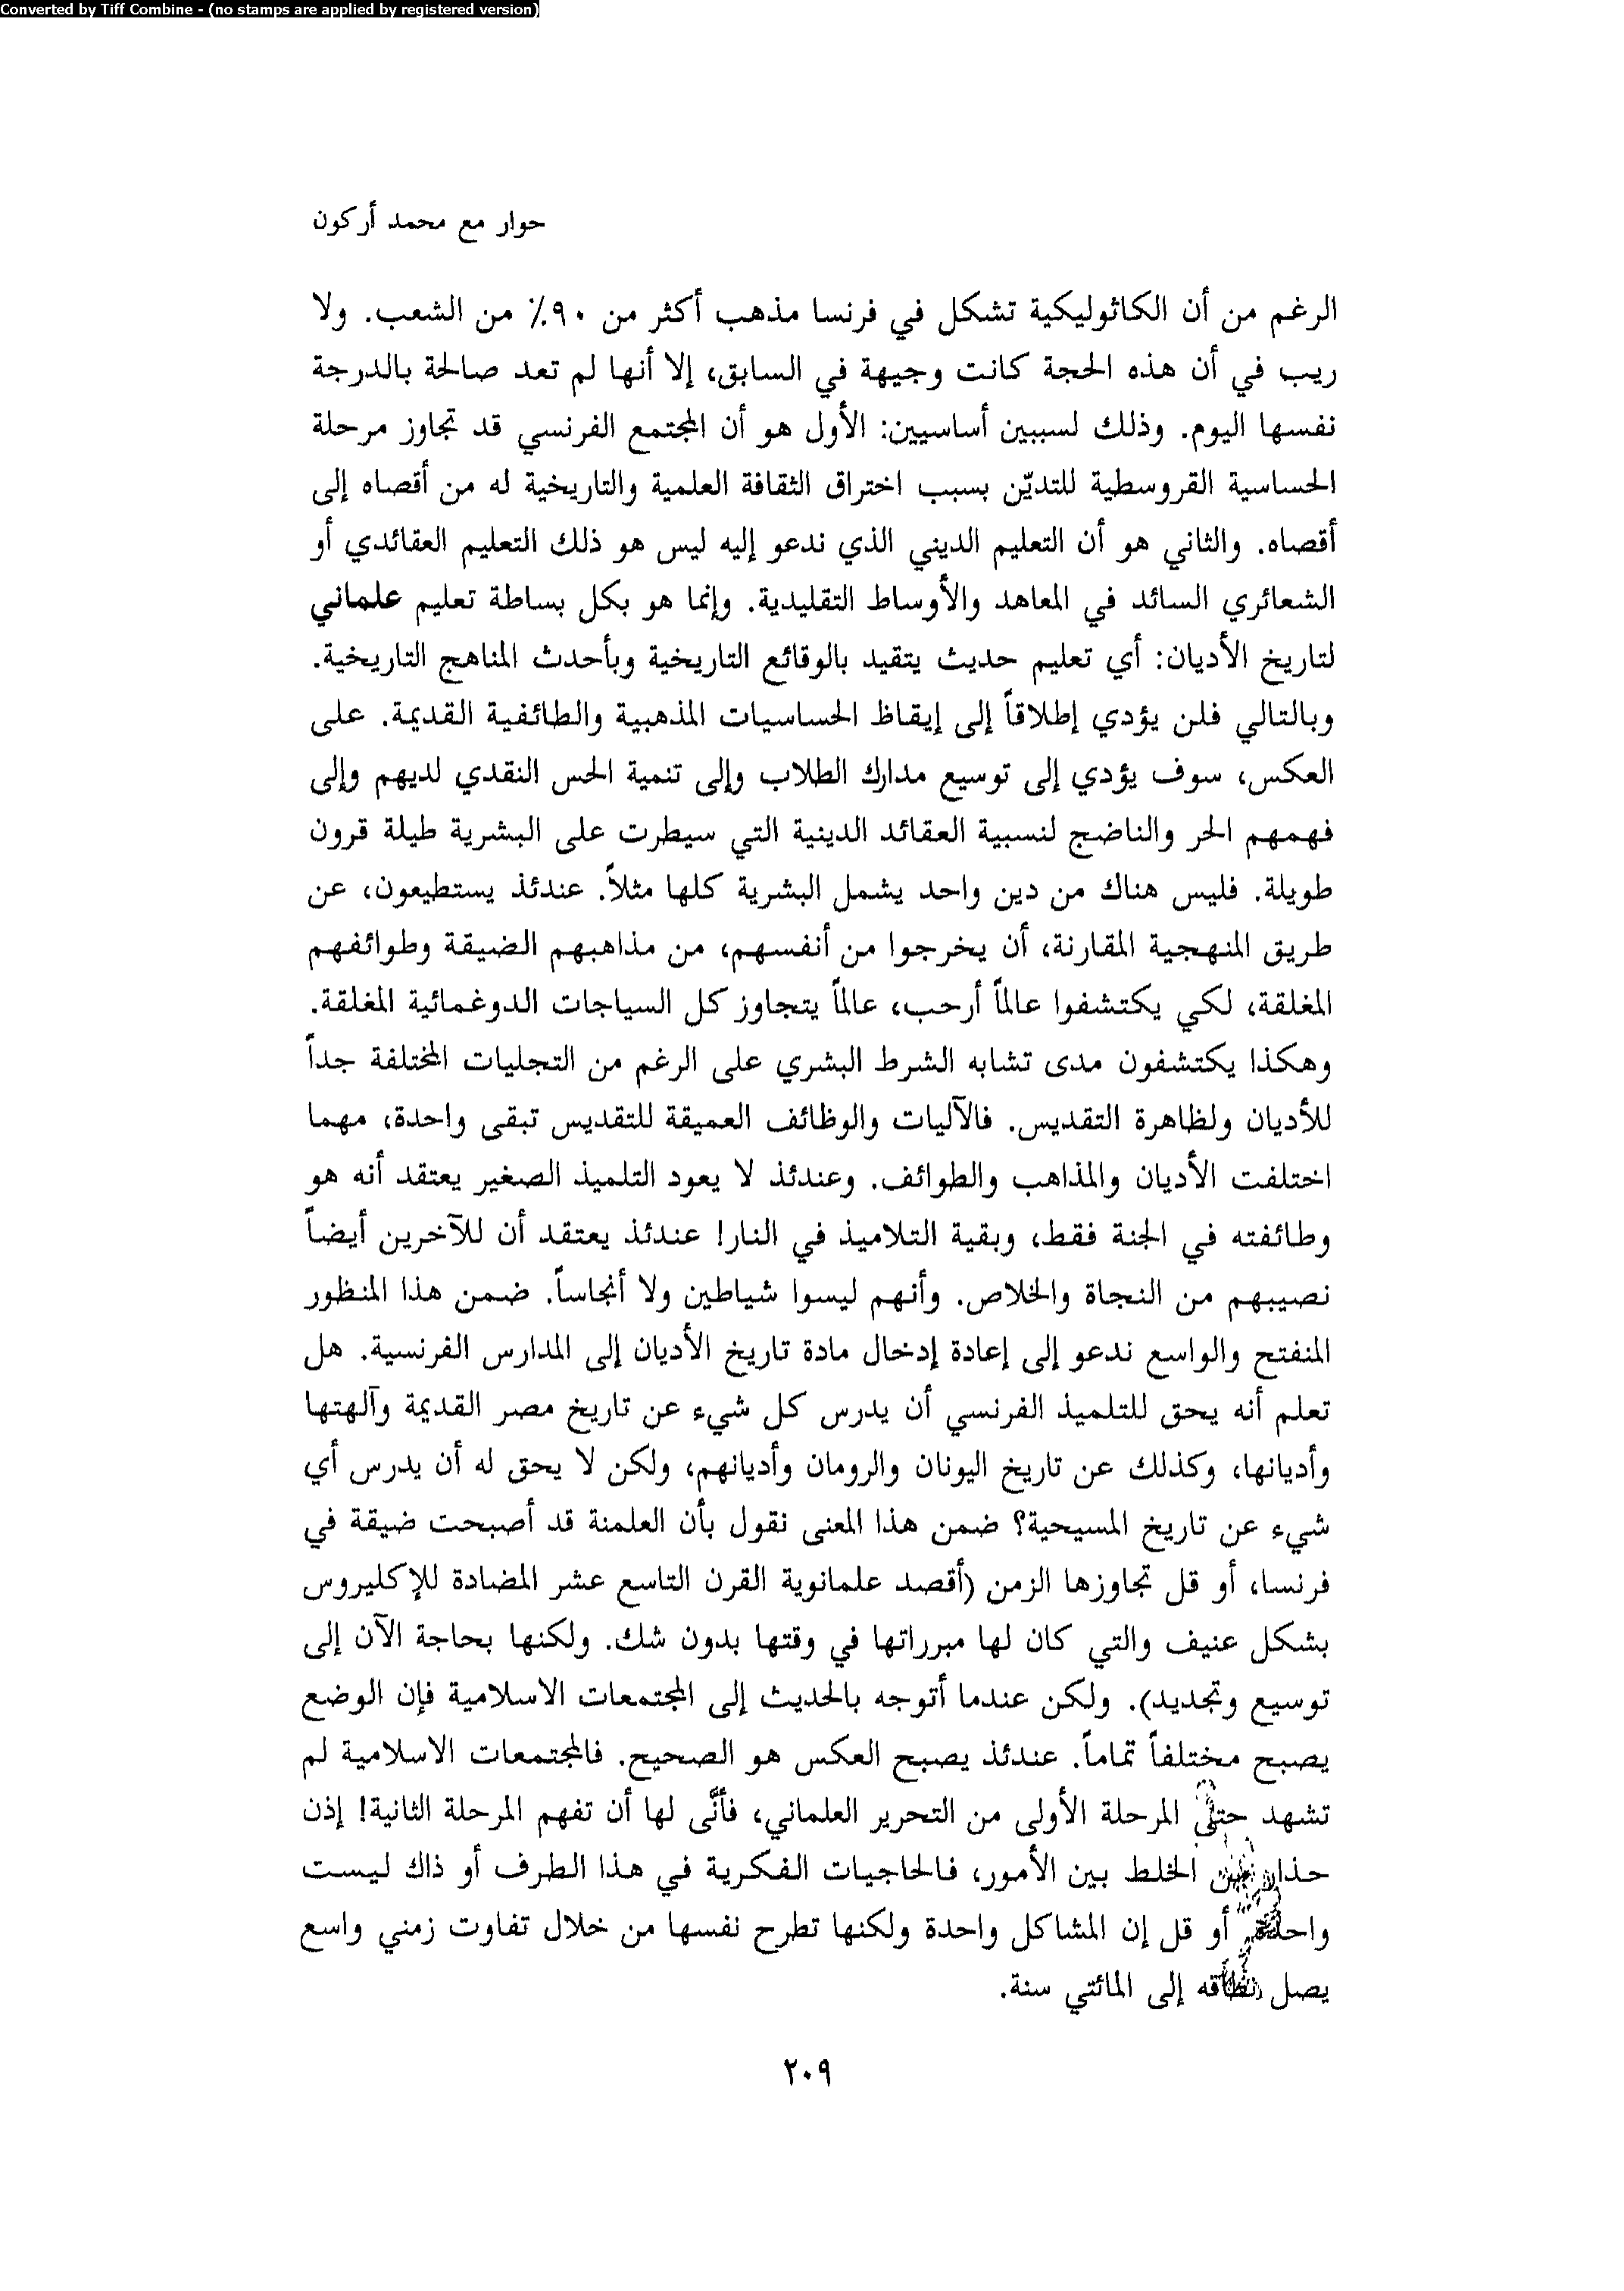 Converted by Tiff Combine - (no stamps are applied by registered version)
حوار مع محمد أركون
الرغم من أن الكاثوليكية تشكل في فرنسا مذهب أكثر من ٩٠٪ من الشعب. ولا
ريب في أن هذه الحجة كانت وجيهة في السابق، إلا أنها لم تعد صالحة بالدرجة
نفسها اليوم. وذلك لسببين أساسيين: الأول هو أن المجتمع الفرنسي قد تجاوز مرحلة
الحساسية القروسطية للتديّن بسبب اختراق الثقافة العلمية والتاريخية له من أقصاه إلى
أقصاه. والثاني هو أن التعليم الديني الذي ندعو إليه ليس هو ذلك التعليم العقائدي أو
الشعائري السائد في المعاهد والأوساط التقليدية. وإنما هو بكل بساطة تعليم علماني
لتاريخ الأديان: أي تعليم حديث يتقيد بالوقائع التاريخية وبأحدث المناهج التاريخية.
وبالتالي فلن يؤدي إطلاقاً إلى إيقاظ الحساسيات المذهبية والطائفية القديمة. على
العكس، سوف يؤدي إلى توسيع مدارك الطلاب وإلى تنمية الحس النقدي لديهم وإلى
فهمهم الحر والناضج لنسبية العقائد الدينية التي سيطرت على البشرية طيلة قرون
طويلة. فليس هناك من دين واحد يشمل البشرية كلها مثلاً. عندئذ يستطيعون، عن
طريق المنهجية المقارنة، أن يخرجوا من أنفسهم، من مذاهبهم الضيقة وطوائفهم
المغلقة، لكي يكتشفوا عالماً أرحب، عالماً يتجاوز كل السياجات الدوغمائية المغلقة.
وهكذا يكتشفون مدى تشابه الشرط البشري على الرغم من التجليات المختلفة جداً
للأديان ولظاهرة التقديس. فالآليات والوظائف العميقة للتقديس تبقى واحدة، مهما
اختلفت الأديان والمذاهب والطوائف. وعندئذ لا يعود التلميذ الصغير يعتقد أنه هو
وطائفته في الجنة فقط، وبقية التلاميذ في النار! عندئذ يعتقد أن للآخرين أيضاً
نصيبهم من النجاة والخلاص. وأنهم ليسوا شياطين ولا أنجاساً. ضمن هذا المنظور
المنفتح والواسع ندعو إلى إعادة إدخال مادة تاريخ الأديان إلى المدارس الفرنسية. هل
تعلم أنه يحق للتلميذ الفرنسي أن يدرس كل شيء عن تاريخ مصر القديمة وآلهتها
وأديانها، وكذلك عن تاريخ اليونان والرومان وأديانهم، ولكن لا يحق له أن يدرس أي
شيء عن تاريخ المسيحية؟ ضمن هذا المعنى نقول بأن العلمنة قد أصبحت ضيقة في
فرنسا، أو قل تجاوزها الزمن (أقصد علمانوية القرن التاسع عشر المضادة للإكليروس
بشكل عنيف والتي كان لها مبرراتها في وقتها بدون شك. ولكنها بحاجة الآن إلى
توسيع وتجديد). ولكن عندما أتوجه بالحديث إلى المجتمعات الاسلامية فإن الوضع
يصبح مختلفاً تماماً. عندئذ يصبح العكس هو الصحيح. فالمجتمعات الاسلامية لم
تشهد حتى المرحلة الأولى من التحرير العلماني، فأنَّى لها أن تفهم المرحلة الثانية! إذن
حذار من الخلط بين الأمور، فالحاجيات الفكرية في هذا الطرف أو ذاك ليست
واحدة. أو قل إن المشاكل واحدة ولكنها تطرح نفسها من خلال تفاوت زمني واسع
يصل نطاقه إلى المائتي سنة.
٢٠٩